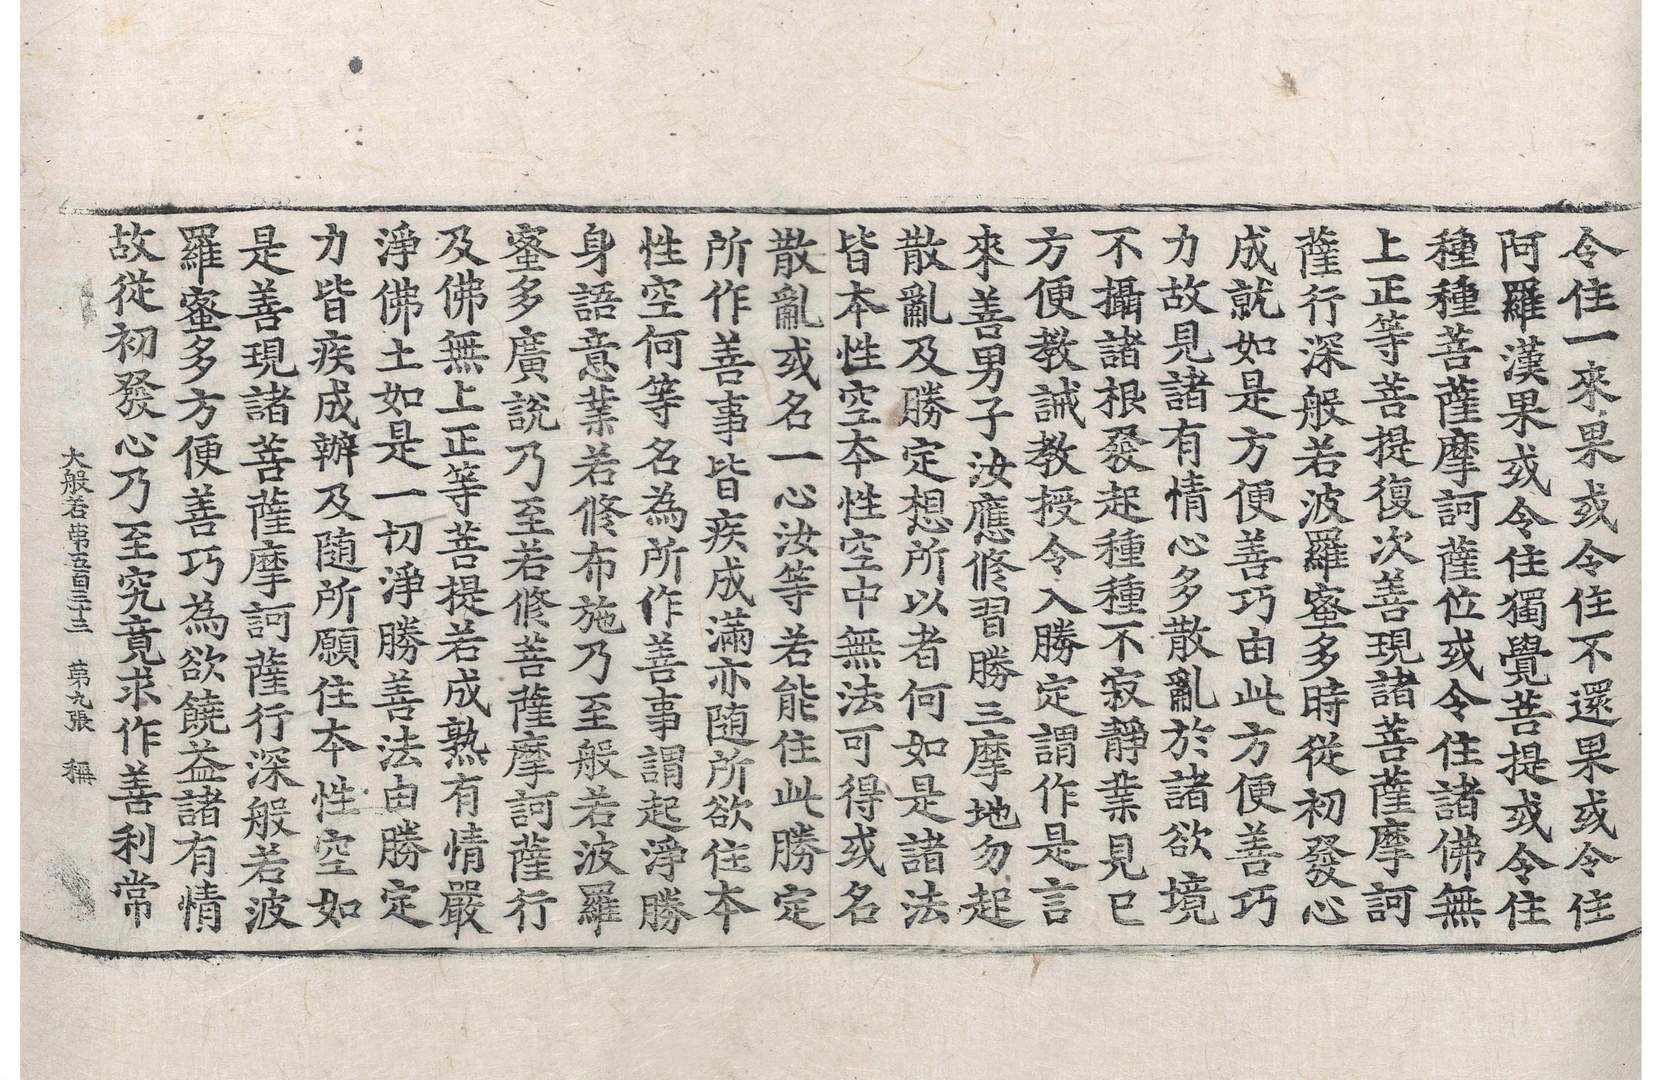 令住一來果或令住不還果或令住
阿羅漢果或令住獨覺菩提或令住
種種菩薩摩訶薩位或令住諸佛無
上正等菩提復次善現諸菩薩摩訶
薩行深般若波羅蜜多時從初發心
成就如是方便善巧由此方便善巧
力故見諸有情心多散亂於諸欲境
不攝諸根發起種種不寂靜業見已
方便教誡教授令入勝定謂作是言
來善男子汝應修習勝三摩地勿起
散亂及勝定想所以者何如是諸法
皆本性空本性空中無法可得或名
散亂或名一心汝等若能住此勝定
所作善事皆疾成滿亦随所欲住本
性空何等名為所作善事謂起淨勝
身語意業若修布施乃至般若波羅
蜜多廣說乃至若修菩薩摩訶薩行
及佛無上正等菩提若成熟有情嚴
淨佛土如是一切淨勝善法由勝定
力皆疾成辦及随所願住本性空如
是善現諸菩薩摩訶薩行深般若波
羅蜜多方便善巧為欲饒益諸有情
故從初發心乃至究竟求作善利常
大般若第五百三十三 第九張 稱